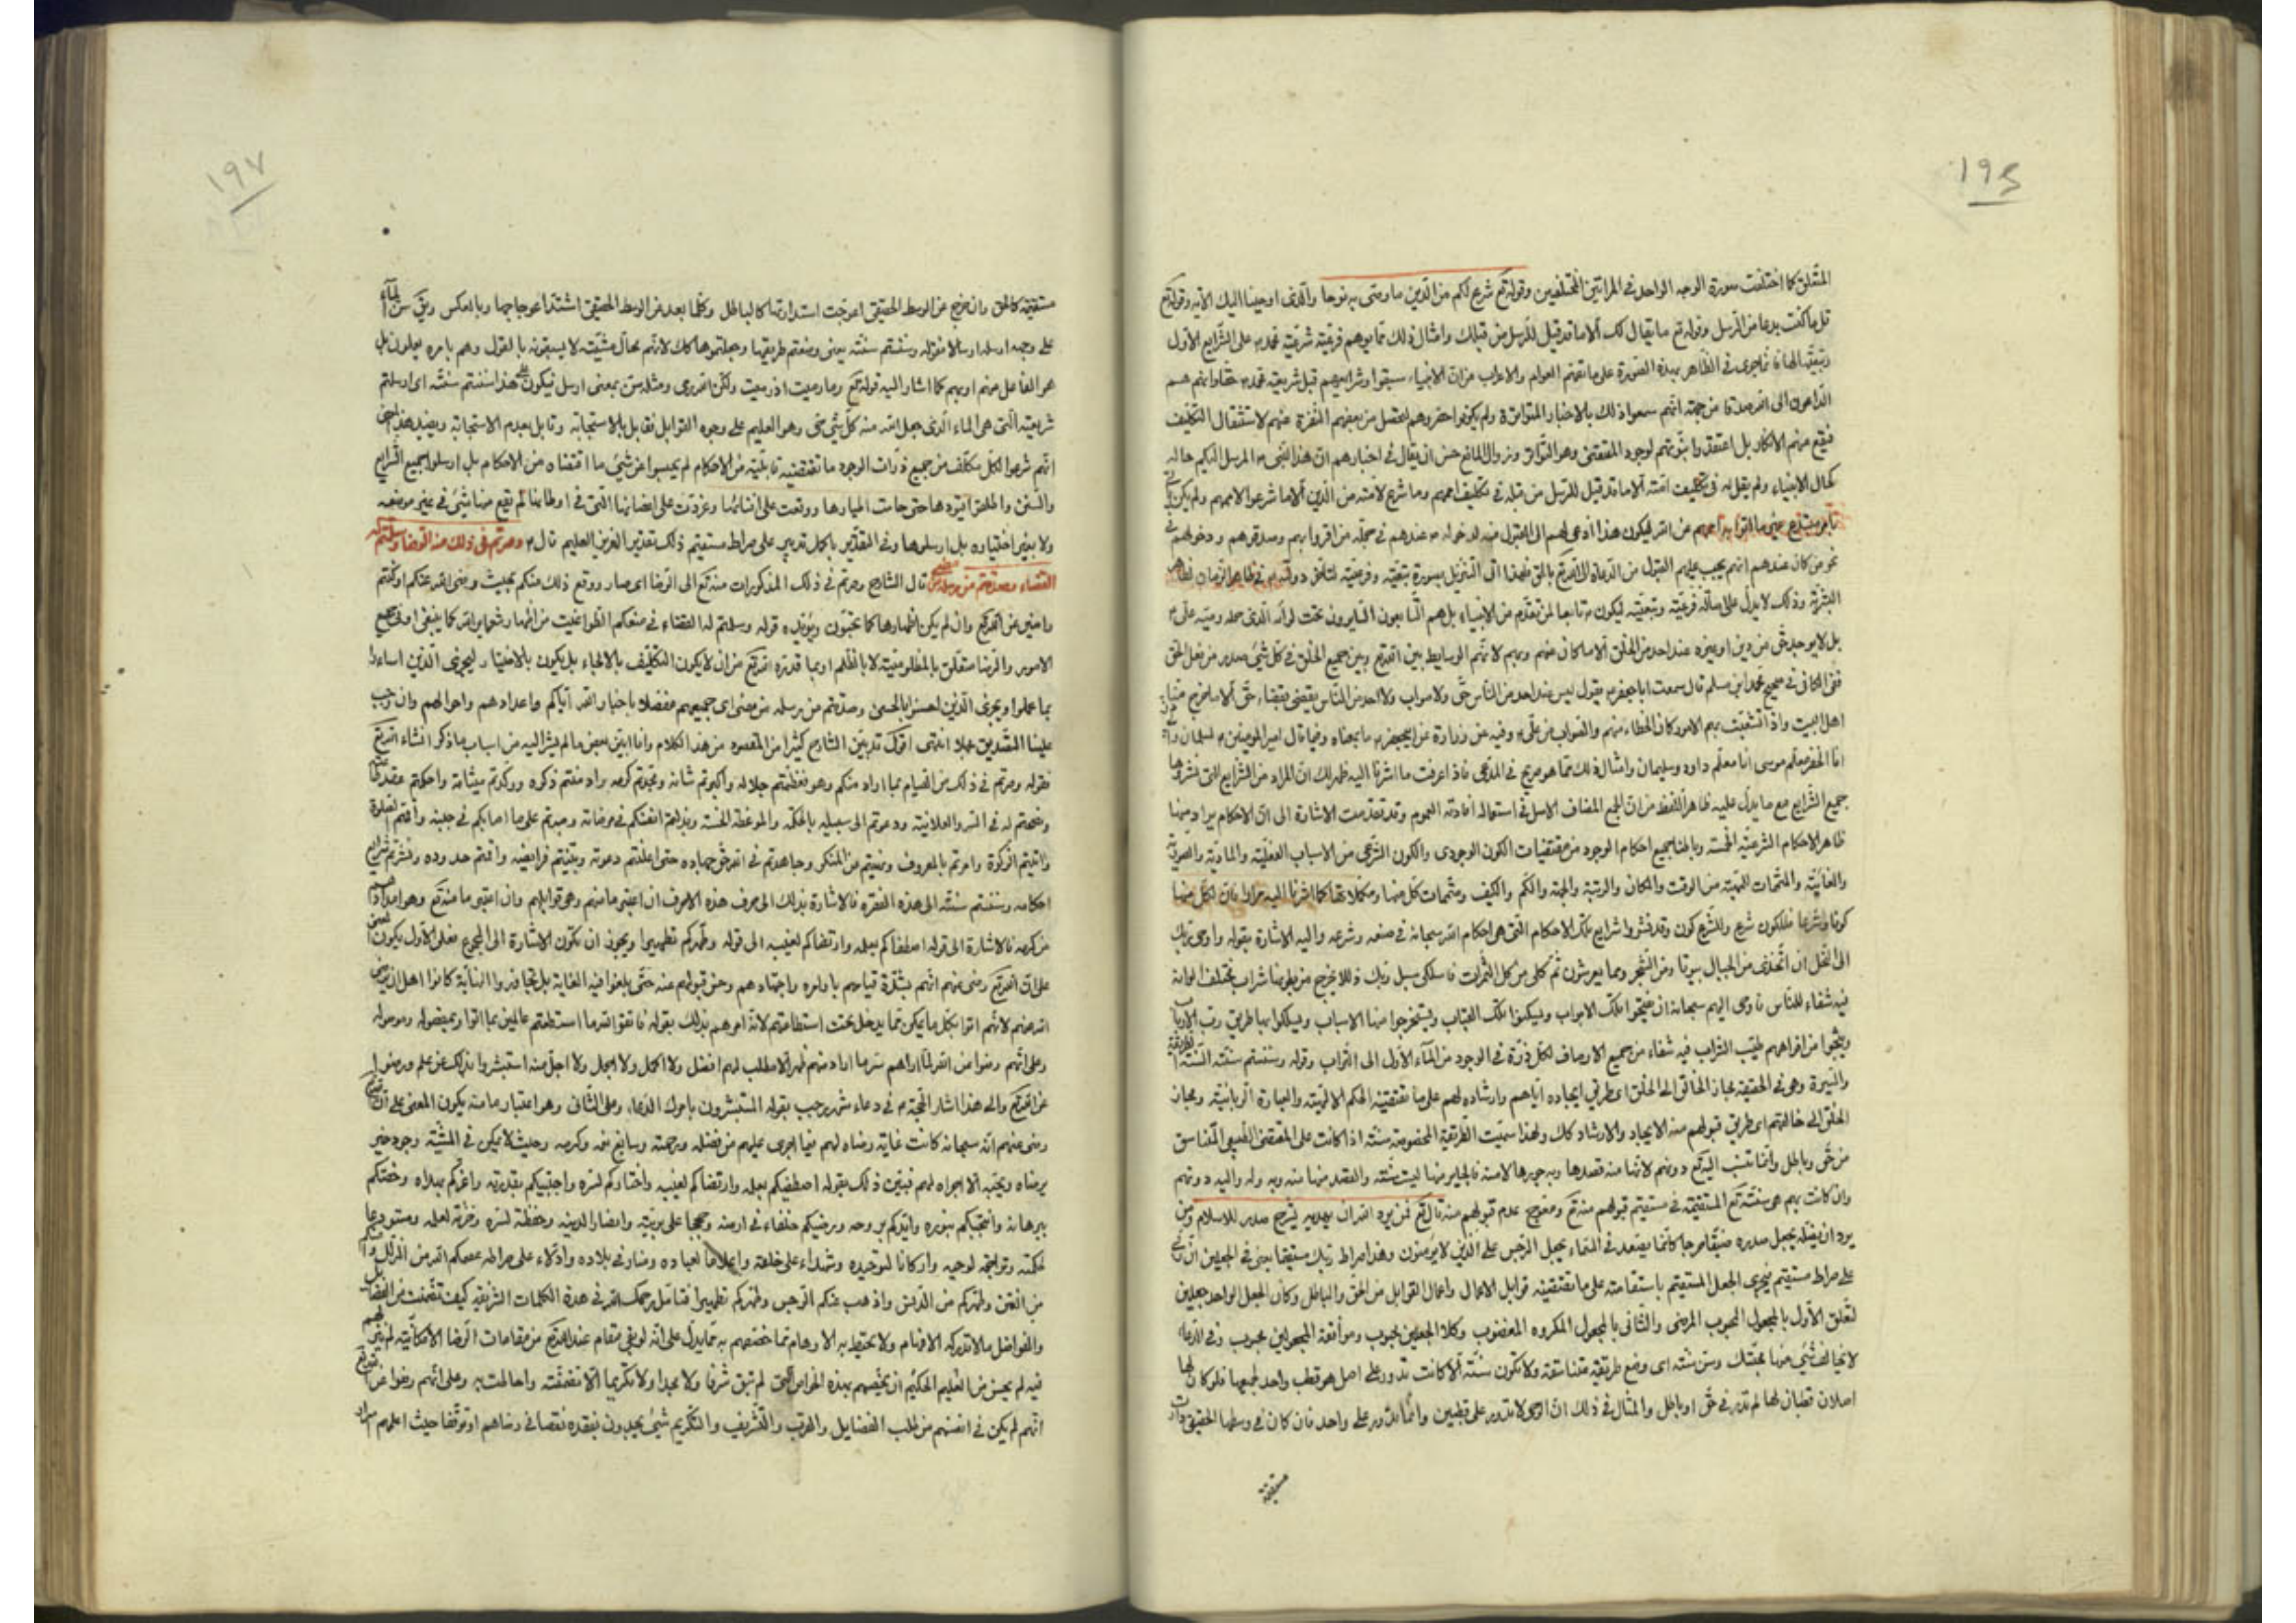 ١٩٤
المتعلق كما اختلفت صورة الوجه الواحد في المرائتين المختلفين وقوله تع شرع لكم من الدين ما وصى به نوحا والذى اوحينا اليك الآية وقوله تع
قل ما كنت بدعا من الرسل وقوله تع ما يقال لك الا ما قد قيل للرسل من قبلك وامثال ذلك مما يوهم فرعية شريعة محمد ص على الشرايع الاول
الظاهر بهذه الصورة على ما تفهم العوام والاعراب من ان الانبياء سبقوا وشرايعهم قبل شريعة محمد ص
من جهة انهم سمعوا ذلك بالاخبار المتواترة ولم يكونوا لاستثقال التكليف
فيقع منهم الانكار بل اعتقدوا لوجود المقتضى وهو التوافق وزوال المانع حسن ان يقال في اخبارهم ان هذا النبى ص المرسل اليكم حاله
كحال الانبياء ولم يقل له في تكليف امته الا ما قد قيل للرسل من قبله في تكليف اممهم وما شرع لامته من الدين الا ما شرعوا لاممهم ولم يكن
عن الله ليكون هذا ادعى لهم الى القبول منه
نحو من كان عندهم انهم يجب عليهم القبول من الدعاة الى الله تع بالحق فلهذا اتى التنزيل بصورة تبعية وفرعية
البشرية وذلك لا يدل على رسالة فرعية وتبعية ليكون ص تابعا لمن تقدم من الانبياء بل هم التابعون السايرون تحت لوائه الذى حمله وصيه على ع
بل لا يوجد حق من دين او غيره عند احد من الخلق الا ما كان عنهم وبهم لانهم الوسايط بين الله تع وبين جميع الخلق في كل شىء صدر من فعل الحق
ففى الكافى في صحيح محمد ابن مسلم قال سمعت ابا جعفر ع يقول ليس عند احد من الناس حق ولا صواب ولا احد من الناس يقضى بقضاء حق الا ما خرج منا
اهل البيت واذا تشعبت بهم الامور كان الخطاء منهم والصواب من على ع وفيه عن زرارة عن ابيجعفر ع ما بمعناه وفيما قال امير المومنين ع لسلمان
انا الخضر معلم موسى انا معلم داود وسليمان وامثال ذلك مما هو صريح في المدعى فاذا عرفت ما اشرنا اليه ظهر لك ان المراد من الشرايع التى نشروها
جميع الشرايع مع ما يدل عليه ظاهر اللفظ من ان الجمع المضاف الاصل في استعماله افادته العموم وقد تقدمت الاشارة الى ان الاحكام يراد منها
ظاهر الاحكام الشرعية الخمسة وباطنا جميع احكام الوجود من مقتضيات الكون الوجودى والكون الشرعى من الاسباب الفعلية والمادية والصورية
والغائية والمتممات من الوقت والمكان والرتبة والجهة والكم والكيف ومتممات كل منها ومكملاتها كما اشرنا اليه مرارا فان لكل منها
كونا وشرعا فللكون شرع وللشرع كون وقد نشروا شرايع تلك الاحكام التى هى احكام الله سبحانه في صنعه وشرعه واليه الاشارة بقوله واوحى ربك
الى النحل ان اتخذى من الجبال بيوتا ومن الشجر ومما يعرشون ثم كلى من كل الثمرات فاسلكى سبل ربك ذللا يخرج من بطونها شراب مختلف الوانه
فيه شفاء للناس فاوحى اليهم سبحانه ان يفتحوا تلك الابواب ويسكنوا تلك القباب ويستخرجوا منها الاسباب ويسلكوا بها طريق رب الارباب
من افواههم طيب الشراب فيه شفاء من جميع الاوصاف لكل ذرة في الوجود من الماء الاول الى التراب وقوله وسننتم سنته السنة الطريقة
والسيرة وهى في الحقيقة مجاز الخالق الى الخلق اى طريق ايجاده اياهم وارشاده لهم على ما تقتضيه الحكم الالهية والعبارة الربانية ومجاز
الخلق الى خالقهم اى طريق قبولهم منه الايجاد والارشاد كك ولهذا سميت الطريقة المخصوصة سنته اذا كانت على المقتضى الطبيعى المتناسق
من حق وباطل وانما تنسب اليه تع دونهم لانها منه قصدها وبه جورها لا منه فالجاير منها ليست سنته والقصد منها منه وبه وله واليه دونهم
وان كانت بهم هى سنته تع المستقيمة في مستقيم قبولهم منه تع عدم قبولهم منه قال تع فمن يرد الله ان يهديه يشرح صدره للاسلام ومن
يرد ان يضله يجعل صدره ضيقا حرجا كانما يصعد في السماء يجعل الرجس على الذين لا يؤمنون وهذا صراط ربك مستقيما يعنى في الجعلين ان ربى
على صراط مستقيم فيجرى الجعل المستقيم باستقامته على ما تقتضيه قوابل الاعمال واعمال القوابل من الحق والباطل وكان الجعل الواحد جعلين
لتعلق الاول بالمجعول المحبوب المرضى والثانى بالمجعول المكروه المغضوب وكلا الجعلين محبوب وموافقة المجعولين محبوب وفى الدعاء
لا يخالف شىء منها محبتك وسن سنته اى وضع طريقة متناسقة ولا تكون سنته الا كانت تدور على اصل هو قطب واحد لجميعها فلو كان لها
اصلان قطبان لها لم تدر في حق او باطل والمثال في ذلك ان الرحى لا تدور على قطبين وانما تدور على واحد فان كان في وسطها الحقيقى دارت
مستقيمة
١٩٧
مستقيمة كالحق وان خرج عن الوسط الحقيقى اعوجت استدارتها كالباطل وكلما بعد عن الوسط الحقيقى اشتد اعوجاجها وبالعكس ويق سن الماء
على وجهه ارسله ارسالا فقوله وسننتم سنته يعنى وضعتم طريقها وجعلتموها كك لانهم محال مشيته لا يسبقونه بالقول وهم بامره يعملون بل
هو الفاعل منهم او بهم كما اشار اليه قوله تع وما رميت اذ رميت ولكن الله رمى ومثله سن بمعنى ارسل فيكون على هذا سننتم سنته اى ارسلتم
شريعته التى هى الماء الذى جعل الله منه كل شىء حى وهو العليم على وجوه القوابل فقابل بالاستجابة وقابل بعدم الاستجابة
انهم شرعوا لكل مكلف من جميع ذرات الوجود ما تقتضيه قابليته من الاحكام لم يحبسوا عن شىء ما اقتضاه من الاحكام بل ارسلوا جميع الشرايع
والسنن حتى ووقعت على وغردت على اغصانها التى في اوطانها لم يقع منها شىء في غير موضعه
ولا بغير اختياره بل ارسلوها وفى التقدير باكمل تدبير على صراط مستقيم ذلك تقدير العزيز العليم قال ع وصرتم في ذلك منه الى الرضا وسلمتم له
القضاء وصدقتم من رسله من مضى قال الشارح وصرتم في ذلك المذكورات منه تع الى الرضا اى صار ووقع ذلك منكم بحيث رضى الله عنكم او كنتم
راضين عن الله تع وان لم يكن اظهارها كما تحبون ويؤيده قوله وسلمتم له القضاء في منعكم الطواغيت من اظهار شعاير الله كما ينبغى او فى جميع
الامور والرضا متعلق بالمظلومية لا بالظلم او بما قدره الله تع من ان لا يكون التكليف بالالجاء بل يكون بالاختيار ليجزى الذين اساءوا
بما عملوا ويجزى الذين احسنوا بالحسنى وصدقتم من رسله من مضى اى جميعهم مفصلا باخبار الله اياكم واعدادهم واحوالهم وان وجب
علينا التصديق مجملا انتهى اقول قد بين الشارح كثيرا من المقصود من هذا الكلام وانا ابين بعض ما لم يشر اليه من اسباب ما ذكر انشاء الله تع
فقوله وصرتم في ذلك من القيام بما اراد منكم وهو فعظمتم جلاله واكبرتم شانه ومجدتم كرمه وادمنتم ذكره ووكدتم ميثاقه واحكمتم عقد طاعته
ونصحتم له في السر والعلانية ودعوتم الى سبيله بالحكمة والموعظة الحسنة وبذلتم انفسكم في مرضاته وصبرتم على ما اصابكم في جنبه واقمتم الصلوة
واتيتم الزكوة وامرتم بالمعروف ونهيتم عن المنكر وجاهدتم في الله حق جهاده حتى اعلنتم دعوته وبينتم فرايضه واقمتم حدوده ونشرتم شرايع
احكامه وسننتم سنته الى هذه الفقرة فالاشارة بذلك الى صرف هذه الاحرف ان اعتبر ما منهم وهى قوابلهم وان اعتبر ما منه تع وهو امداداتهم
من كرمه فالاشارة الى قوله اصطفاكم بعلمه وارتضاكم لغيبه الى قوله وطهركم تطهيرا ويجوز ان تكون الاشارة الى المجموع فعلى الاول يكون المعنى
على ان الله تع رضى عنهم انهم بشدة قيامهم باوامره واجتهادهم وحسن قبولهم عنه حتى بلغوا فيه الغاية بل تجاوزوا النهاية كانوا اهلا ان يرضى
الله عنهم لانهم اتوا بكل ما يمكن مما يدخل تحت استطاعتهم لانه امرهم بذلك بقوله فاتقوا الله ما استطعتم عالمين بما اتوا وبمفصوله وموصوله
وعلى انهم رضوا من الله لما اراهم سر ما اراد منهم فهم لا مطلب لهم افضل ولا اكمل ولا اجمل ولا اجل منه استبشروا بذلك عن علم ورضوا
عن الله تع والى هذا اشار الحجة ع في دعاء شهر رجب بقوله المستبشرون بامرك الدعاء وعلى الثانى وهو اعتبار ما منه يكون المعنى على ان الله تع
رضى عنهم انه سبحانه كانت غاية رضاه لهم فيما اجرى عليهم من فضله ورحمته وسابغ نعمه وكرمه وحيث لا يمكن في المشية وجود خير
يرضاه ويحبه الا اجراه لهم فبين ذلك بقوله اصطفيكم بعلمه وارتضاكم لغيبه واختاركم لسره واجتبيكم بقدرته واعزكم بهداه وخصكم
ببرهانه وانتجبكم بنوره وايدكم بروحه ورضيكم خلفاء في ارضه وحججا على بريته وانصارا لدينه وحفظة لسره وخزنة لعلمه ومستودعا
لحكمته وتراجمة لوحيه واركانا لتوحيده وشهداء على خلقه واعلاما لعباده ومنارا في بلاده وادلاء على صراطه عصمكم الله من الزلل وآمنكم
من الفتن وطهركم من الدنس واذهب عنكم الرجس وطهركم تطهيرا فتامل رحمك الله في هذه الكلمات الشريفة كيف تضمنت من الفضايل
والفواضل ما لا تدركه الافهام ولا تحيط به الاوهام مما خصهم به مما يدل على انه لو بقى مقام عند الله تع من مقامات الرضا الامكانية لم يرضهم
فيه لم يحسن من العليم الحكيم ان يخصهم بهذه الخواص التى لم تبق شرفا ولا مجدا ولا تكريما الا تضمنته واحاطت به وعلى انهم رضوا عن الله تع
انهم لم يكن في انفسهم من طلب الفضايل والقرب والتشريف والتكريم شىء يجدون بفقده نقصا في رضاهم او توقفا حيث اعلمهم سر